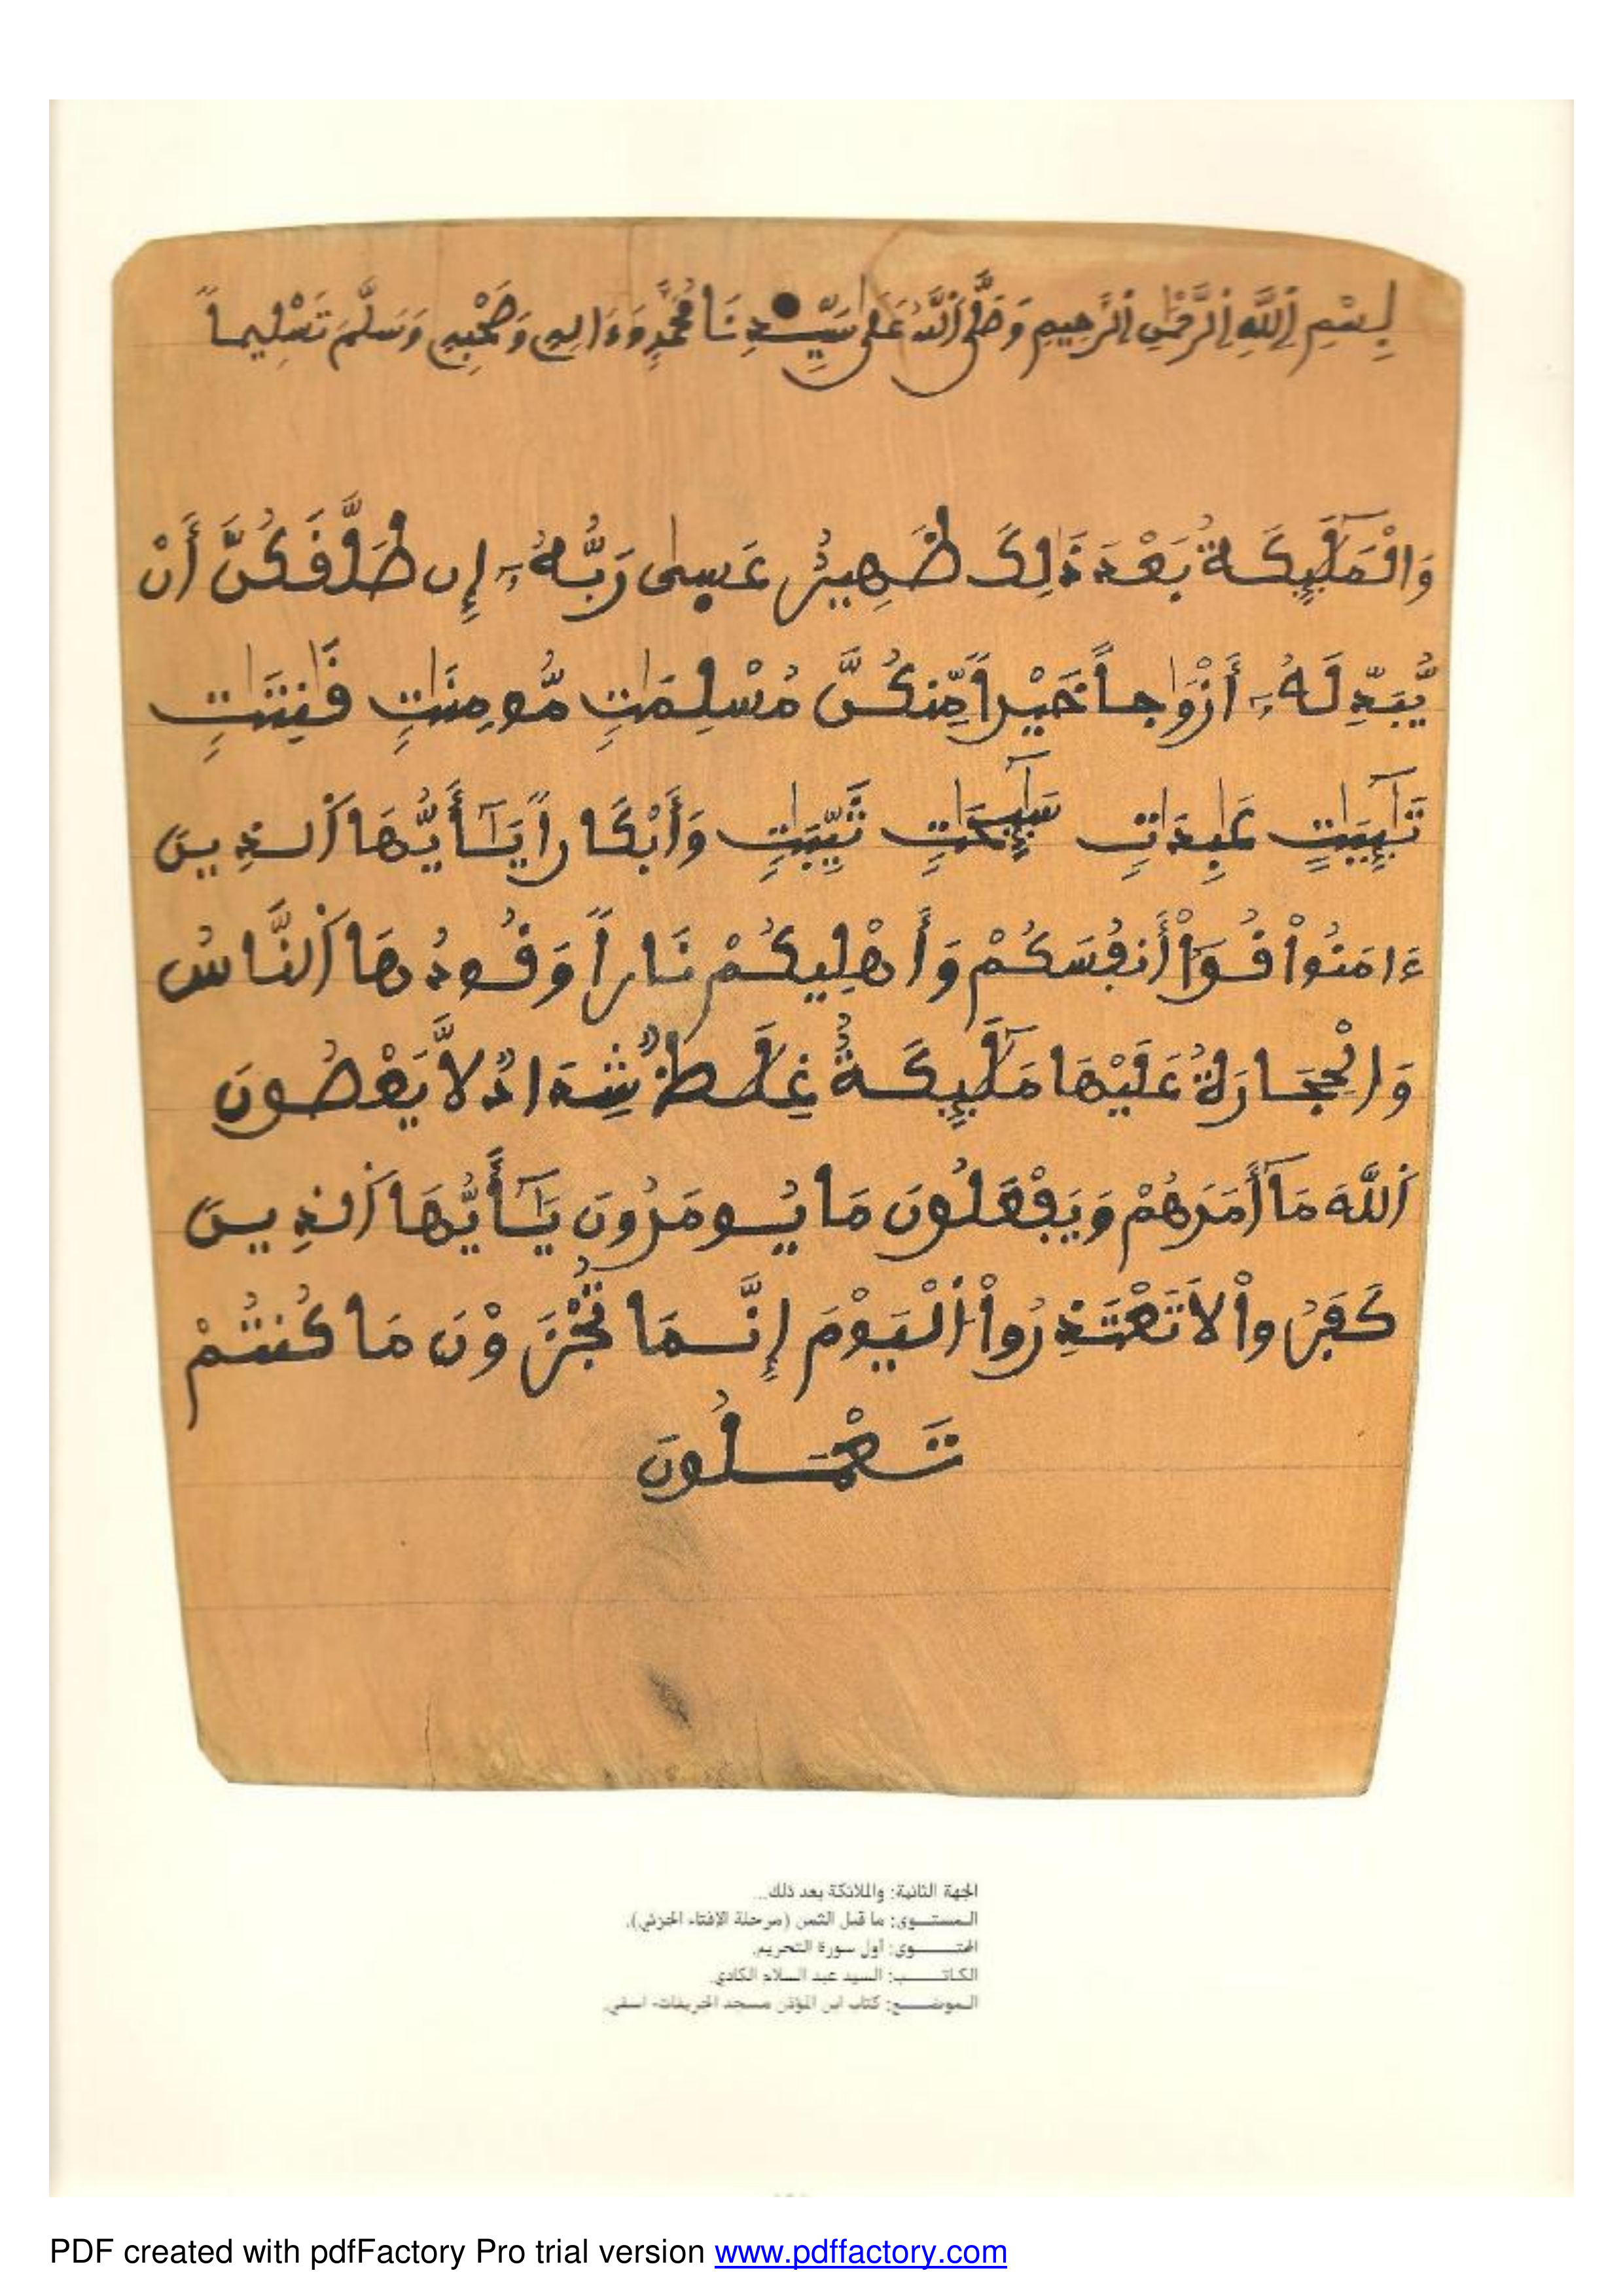 بِسْمِ اِللَّهِ اِلرَّحْمَٰنِ اِلرَّحِيمِ وَصَلَّى اَللَّهُ عَلَىٰ سَيِّدِنَا مُحَمَّدٍ وَءَالِهِ وَصَحْبِهِ وَسَلَّمَ تَسْلِيماً
وَالْمَلَٰٓئِكَةُ بَعْدَ ذَٰلِكَ ظَهِيرٌ عَسىٰ رَبُّهُۥٓ إِن طَلَّقَكُنَّ أَنْ
يُّبَدِّلَهُۥٓ أَزْوَٰجاً خَيْراً مِّنكُنَّ مُسْلِمَٰتٍ مُّومِنَٰتٍ قَٰنِتَٰتٍ
تَٰٓئِبَٰتٍ عَٰبِدَٰتٍ سَٰٓئِحَٰتٍ ثَيِّبَٰتٍ وَأَبْكَاراً يَٰٓأَيُّهَا اَلذِينَ
ءَامَنُواْ قُوٓاْ أَنفُسَكُمْ وَأَهْلِيكُمْ نَاراً وَقُودُهَا اَلنَّاسُ
وَالْحِجَارَةُ عَلَيْهَا مَلَٰٓئِكَةٌ غِلَٰظٌ شِدَادٌ لاَّ يَعْصُونَ
اَللَّهَ مَآ أَمَرَهُمْ وَيَفْعَلُونَ مَا يُومَرُونَ يَٰٓأَيُّهَا اَلذِينَ
كَفَرُواْ لاَ تَعْتَذِرُواْ اُلْيَوْمَ إِنَّمَا تُجْزَوْنَ مَا كُنتُمْ
تَعْمَلُونَ
الجهة الثانية: والملائكة بعد ذلك...
المستوى: ما قبل الثمن (مرحلة الإفتاء الجزئي).
المحتوى: أول سورة التحريم.
الكاتب: السيد عبد السلام الكادي.
الموضع: كتاب ابن المؤذن مسجد الخريفات- اسفي.
PDF created with pdfFactory Pro trial version www.pdffactory.com